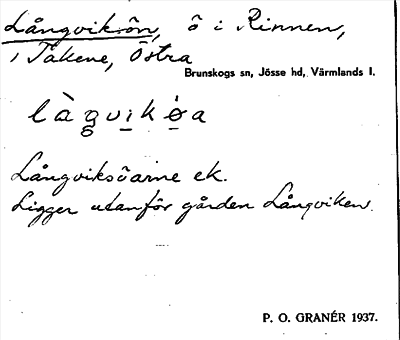 Långviksön, ö i Rinnen,
i Tåkene, Östra
Brunskogs sn, Jösse hd, Värmlands l.
Långviksöarne ek.
Ligger utanför gården Långviken.
P. O. GRANÉR 1937.